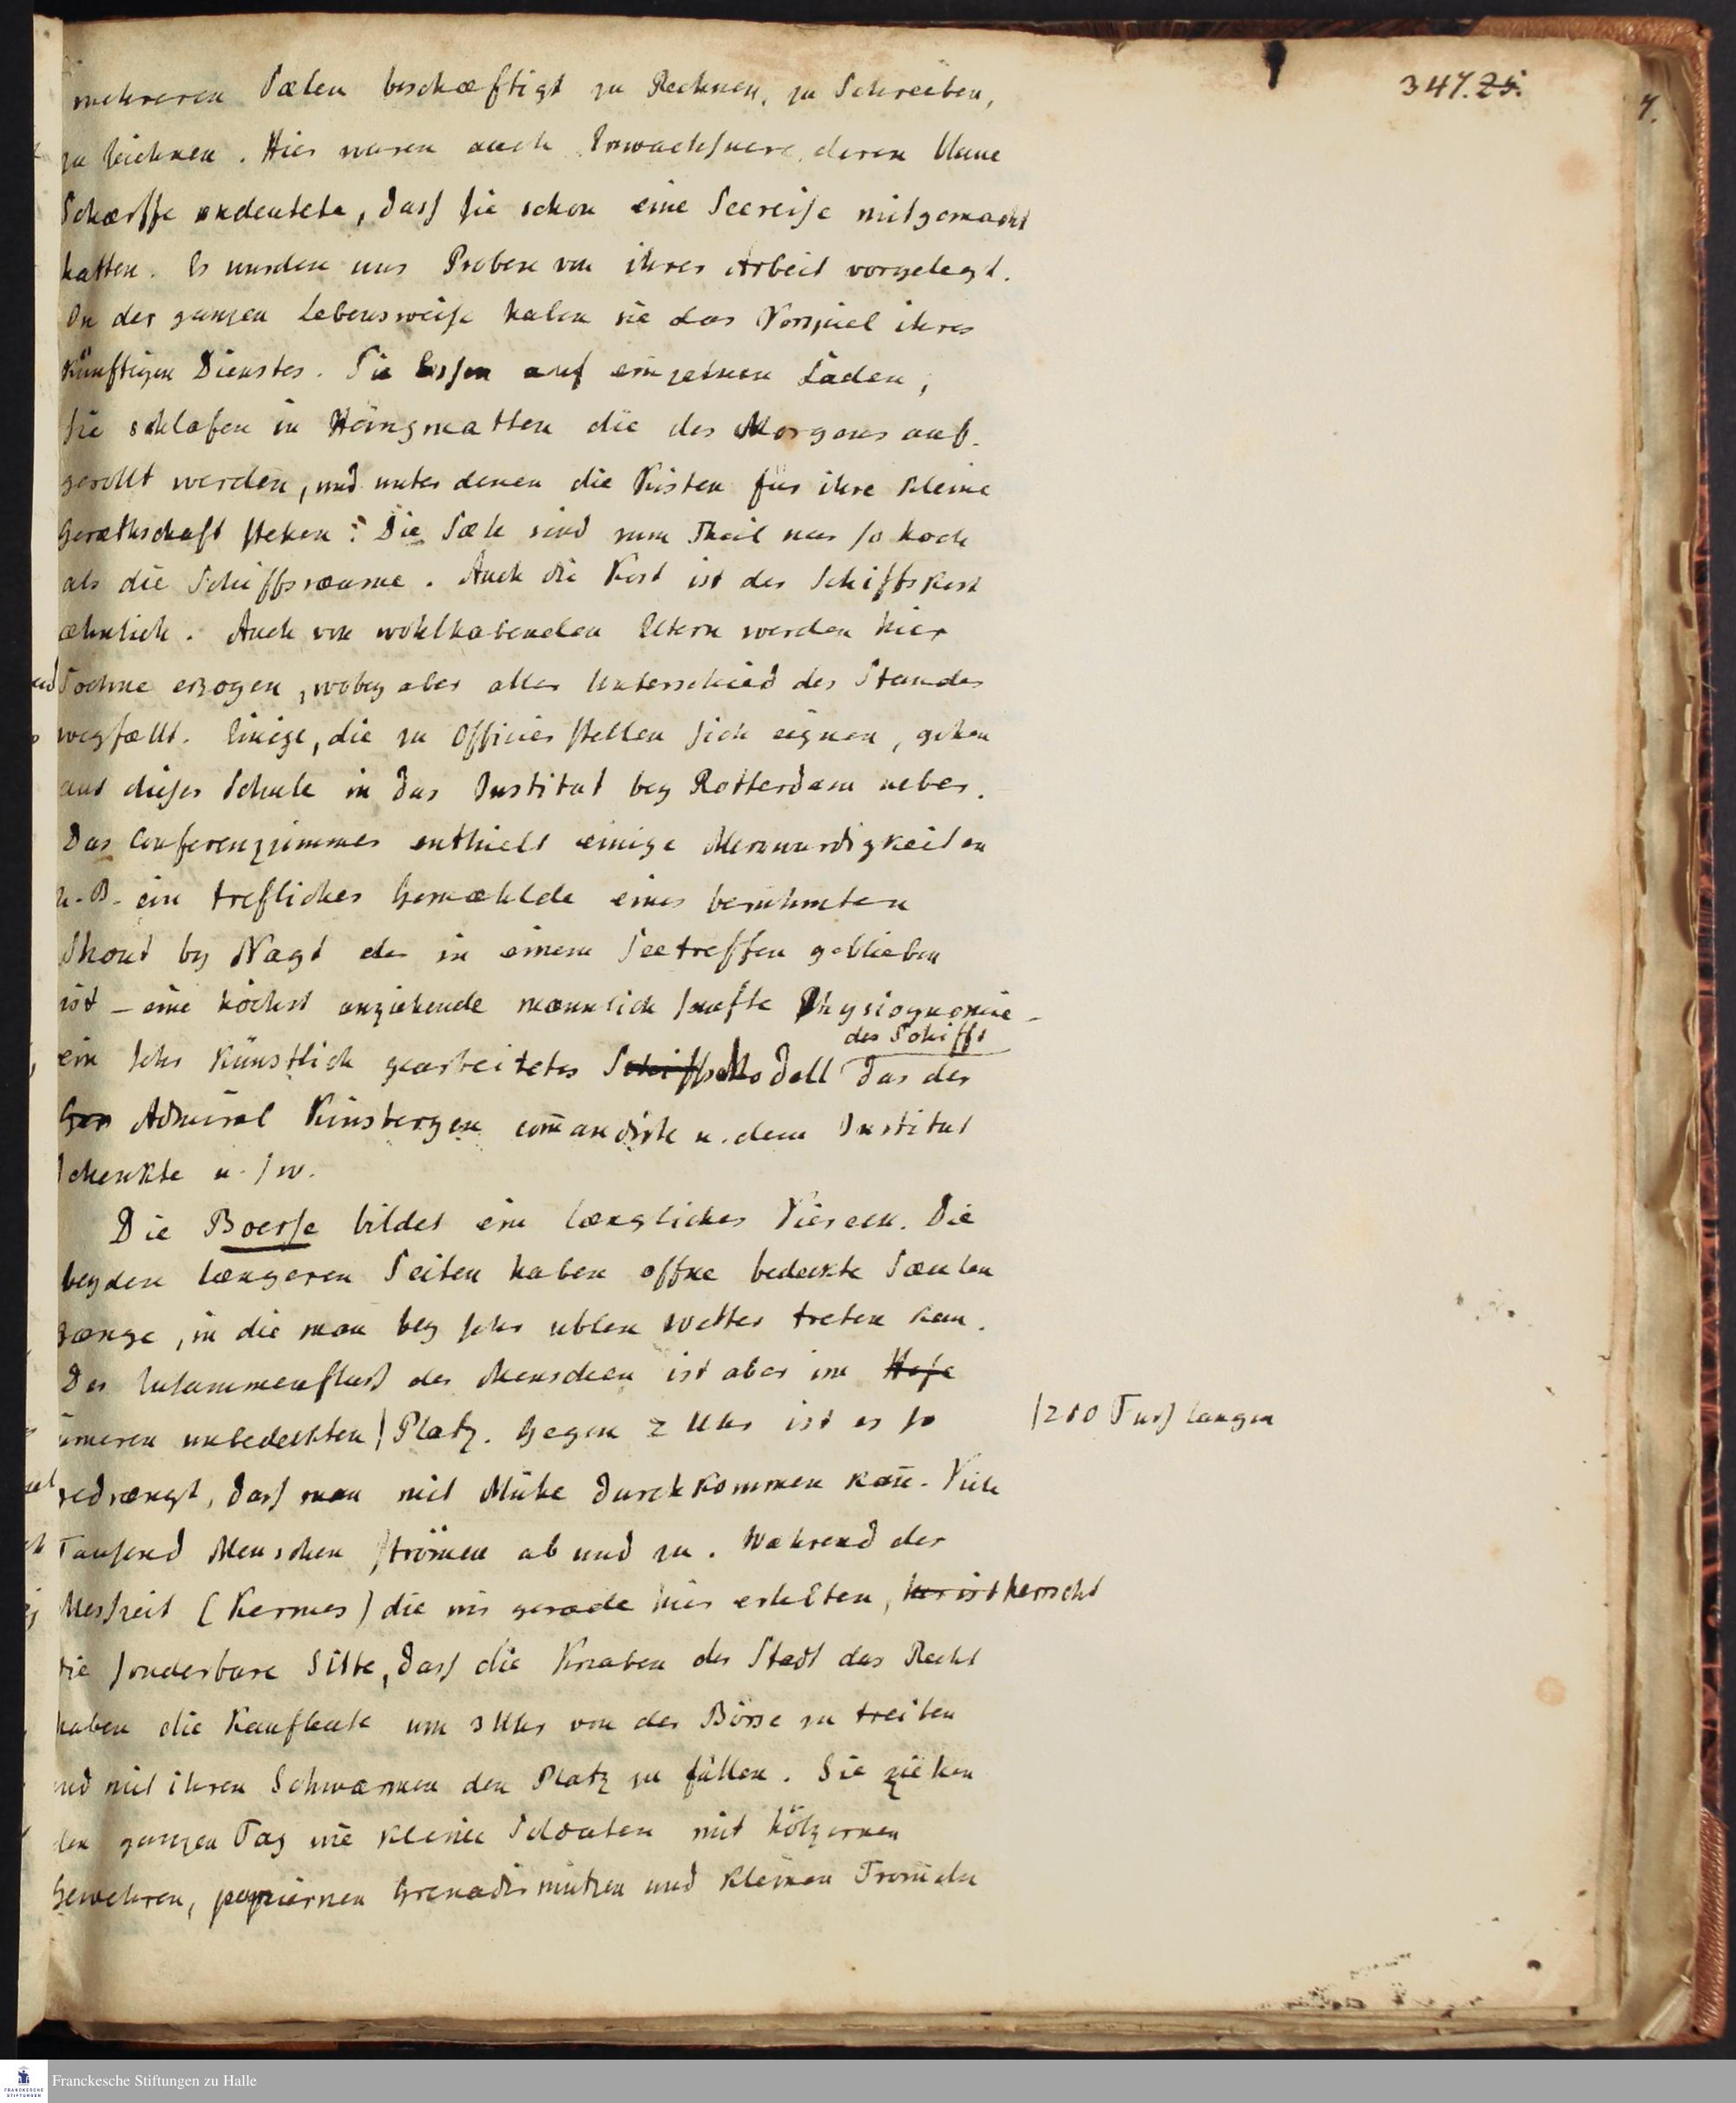 347. 25.
mehreren Sælen beschæftigt zu Rechnen, zu Schreiben,
zu Zeichnen. Hier waren auch Erwachsnere, deren blaue
Schærffe andeutete, dass sie schon eine Seereise mitgemacht
hatten. Es wurden uns Proben von ihrer Arbeit vorgelegt.
In der ganzen Lebensweise haben sie das Vorspiel ihres
künftigen Dienstes. Sie Essen auf einzelnen Laden,
sie schlafen in Hängmatten die des Morgens auf-
gerollt werden, und unter denen die Kisten für ihre kleine
Geræthschaft stehen. Die Sæle sind zum Theil nur so hoch
als die Schiffsræume. Auch die Kost ist der Schiffskost
æhnlich. Auch von wohlhabenden Eltern werden hier
Soehne erzogen, wobey aber aller Unterschied des Standes
wegfællt. Einige, die zu Officier stellen sich eignen, gehen
aus dieser Schule in das Institut bey Rotterdam ueber.
Das Conferenzzimmer enthielt einige Merkwurdigkeiten
z. B. ein trefliches Gemæhlde eines beruhmten
Shout by Nagt der in einem Seetreffen geblieben
ist – eine höchst anziehende mænnlich sanfte Physiognomie –
ein sehr künstlich gearbeitetes Schiffs Modell des Schiffs das der
Gen Admiral Kinsbergen com̄andirte u. dem Institut
schenkte u. s w.
Die Boerse bildet ein længliches Viereck. Die
beyden længeren Seiten haben offne bedeckte Sæulen
gænge, in die man bey sehr ublen Wetter treten kan.
Der Zusammenfluss der Menschen ist aber im Hofe
inneren unbedeckten | Platz. Gegen 2 Uhr ist es so
| 200 Fuss langen
gedrængt, dass man mit Mühe durchkommen kan̄. Viele
Tausend Menschen strömen ab und zu. Wahrend der
Messzeit (Kermes) die wir gerade hier erlebten, hier ist herrscht
die sonderbare Sitte, dass die Knaben der Stadt das Recht
haben die Kaufleute um 3 Uhr von der Börse zu treiben
und mit ihren Schwærmen den Platz zu füllen. Sie ziehen
den ganzen Tag wie kleine Soldaten mit hölzernen
Gewehren, papiernen Grenadirmützen und kleinen Trom̄eln
Franckesche Stiftungen zu Halle